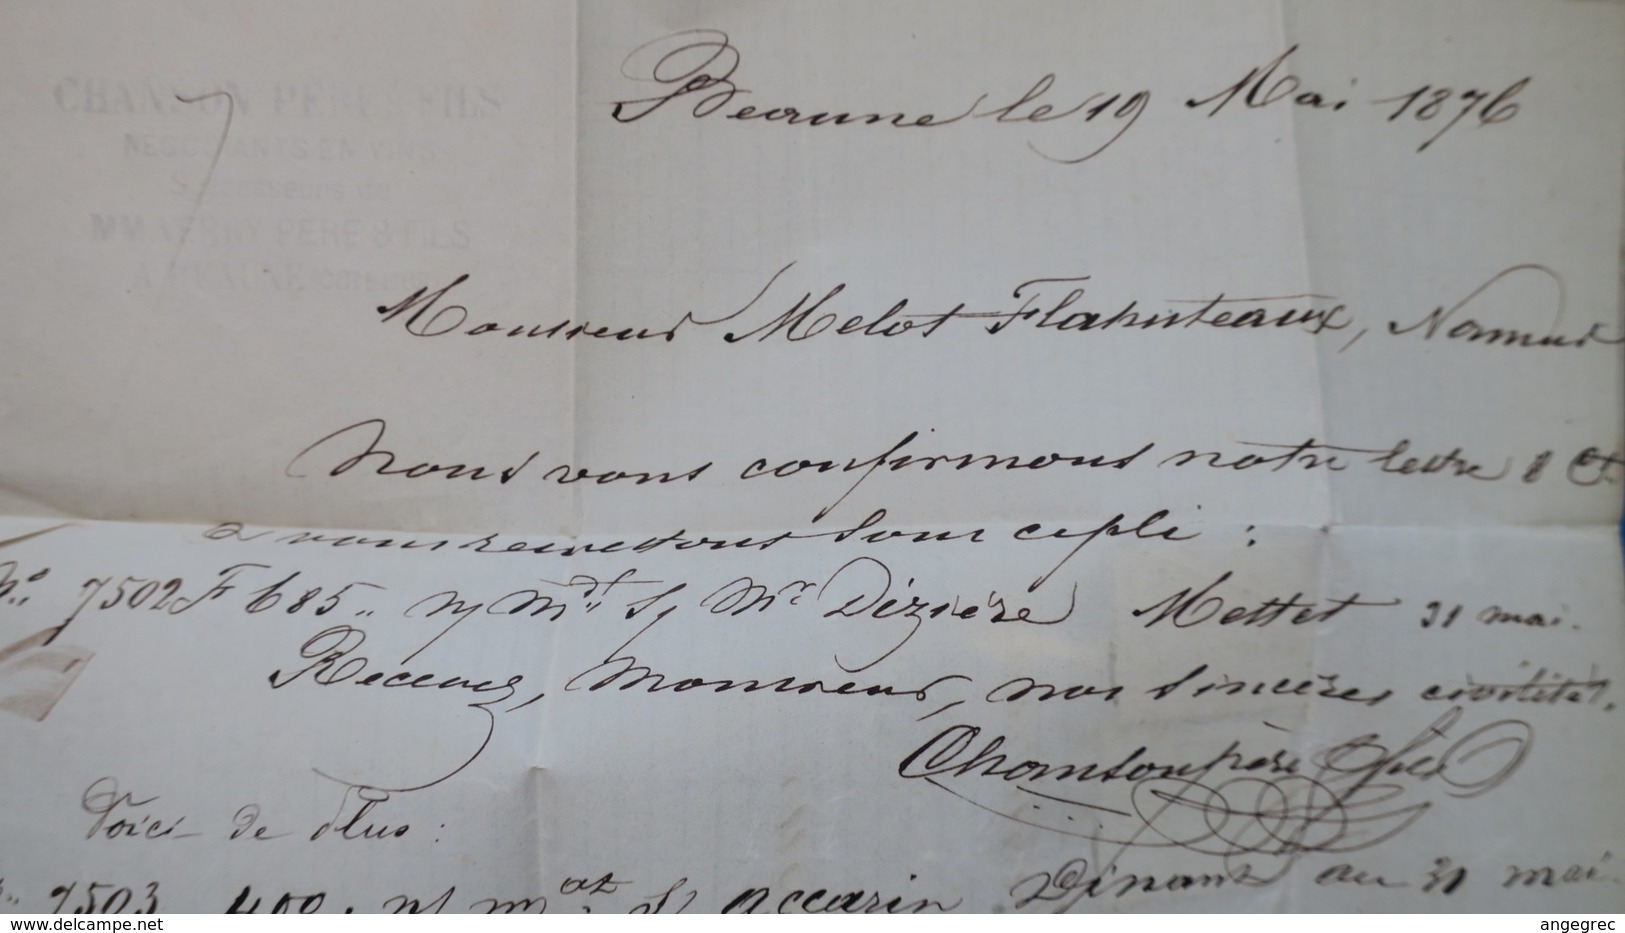 CHANSON PERE & FILS
NEGOCIANTS EN VINS
Successeurs de
MM VERRY PERE & FILS
A BEAUNE
Beaune le 19 Mai 1876
Monsieur Melot Flahuteaux, Namur
Nous vous confirmons notre lettre 8 Ct
& vous remettons sous ce pli :
No 7502 F 685 „ n/ mdt s/ Mr Dézière Mettet 31 mai.
Recevez, Monsieur, nos sincères civilités.
Chanson père & fils
Voici de plus :
7503 400. n/ mat s/ Accarin Dinant au 31 mai.
angegrec